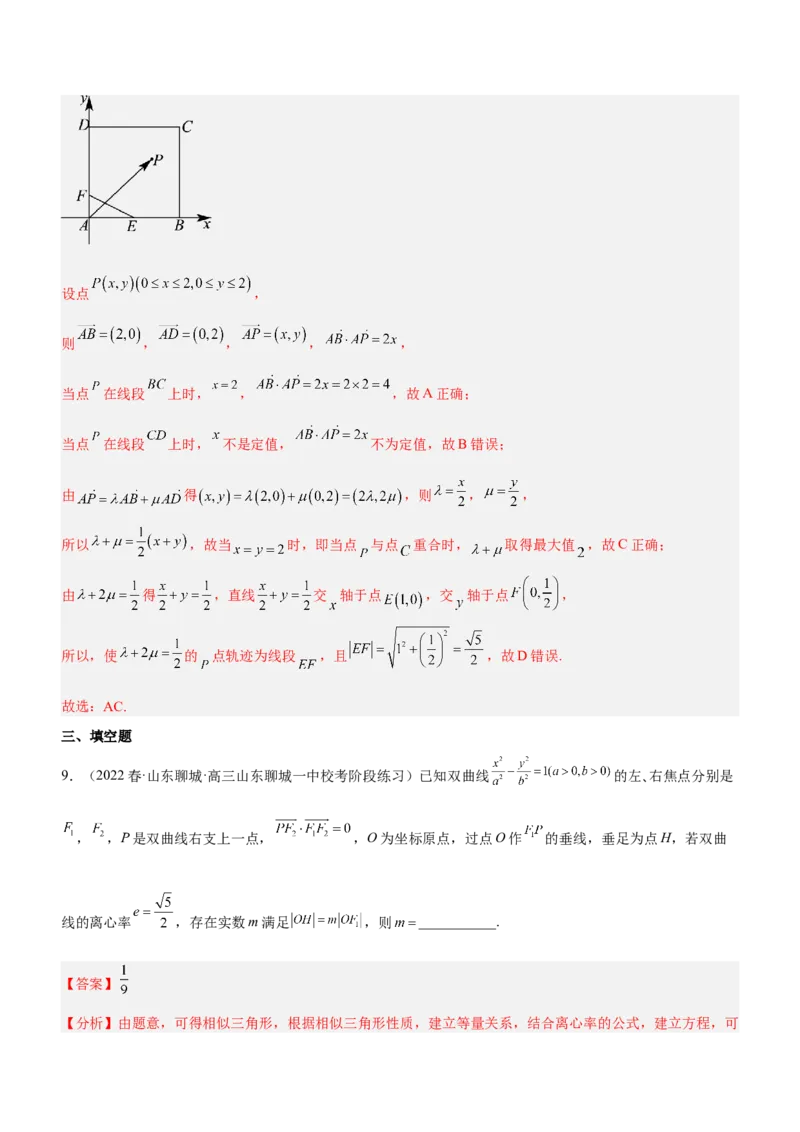 y
D
C
P
F
A
E
B
x
设点P(x,y)(0≤x≤2,0≤y≤2),
则AB=(2,0),AD=(0,2),AP=(x,y),AB·AP=2x,
当点P在线段BC上时,x=2,AB·AP=2x=2×2=4,故A正确;
当点P在线段CD上时,x不是定值,AB·AP=2x不为定值,故B错误;
由AP=λAB+μAD得(x,y)=λ(2,0)+μ(0,2)=(2λ,2μ),则λ=x/2,μ=y/2,
所以λ+μ=1/2(x+y),故当x=y=2时,即当点P与点C重合时,λ+μ取得最大值2,故C正确;
由λ+2μ=1/2得x/2+y=1/2,直线x/2+y=1/2交x轴于点E(1,0),交y轴于点F(0,1/2),
所以,使λ+2μ=1/2的P点轨迹为线段EF,且|EF|=√(1²+(1/2)²)=√5/2,故D错误.
故选:AC.
三、填空题
9.(2022春·山东聊城·高三山东聊城一中校考阶段练习)已知双曲线x²/a²-y²/b²=1(a>0,b>0)的左、右焦点分别是
F₁,F₂,P是双曲线右支上一点,PF₂·F₁F₂=0,O为坐标原点,过点O作F₁P的垂线,垂足为点H,若双曲
线的离心率e=√5/2,存在实数m满足|OH|=m|OF₁|,则m=___________.
【答案】1/9
【分析】由题意,可得相似三角形,根据相似三角形性质,建立等量关系,结合离心率的公式,建立方程,可